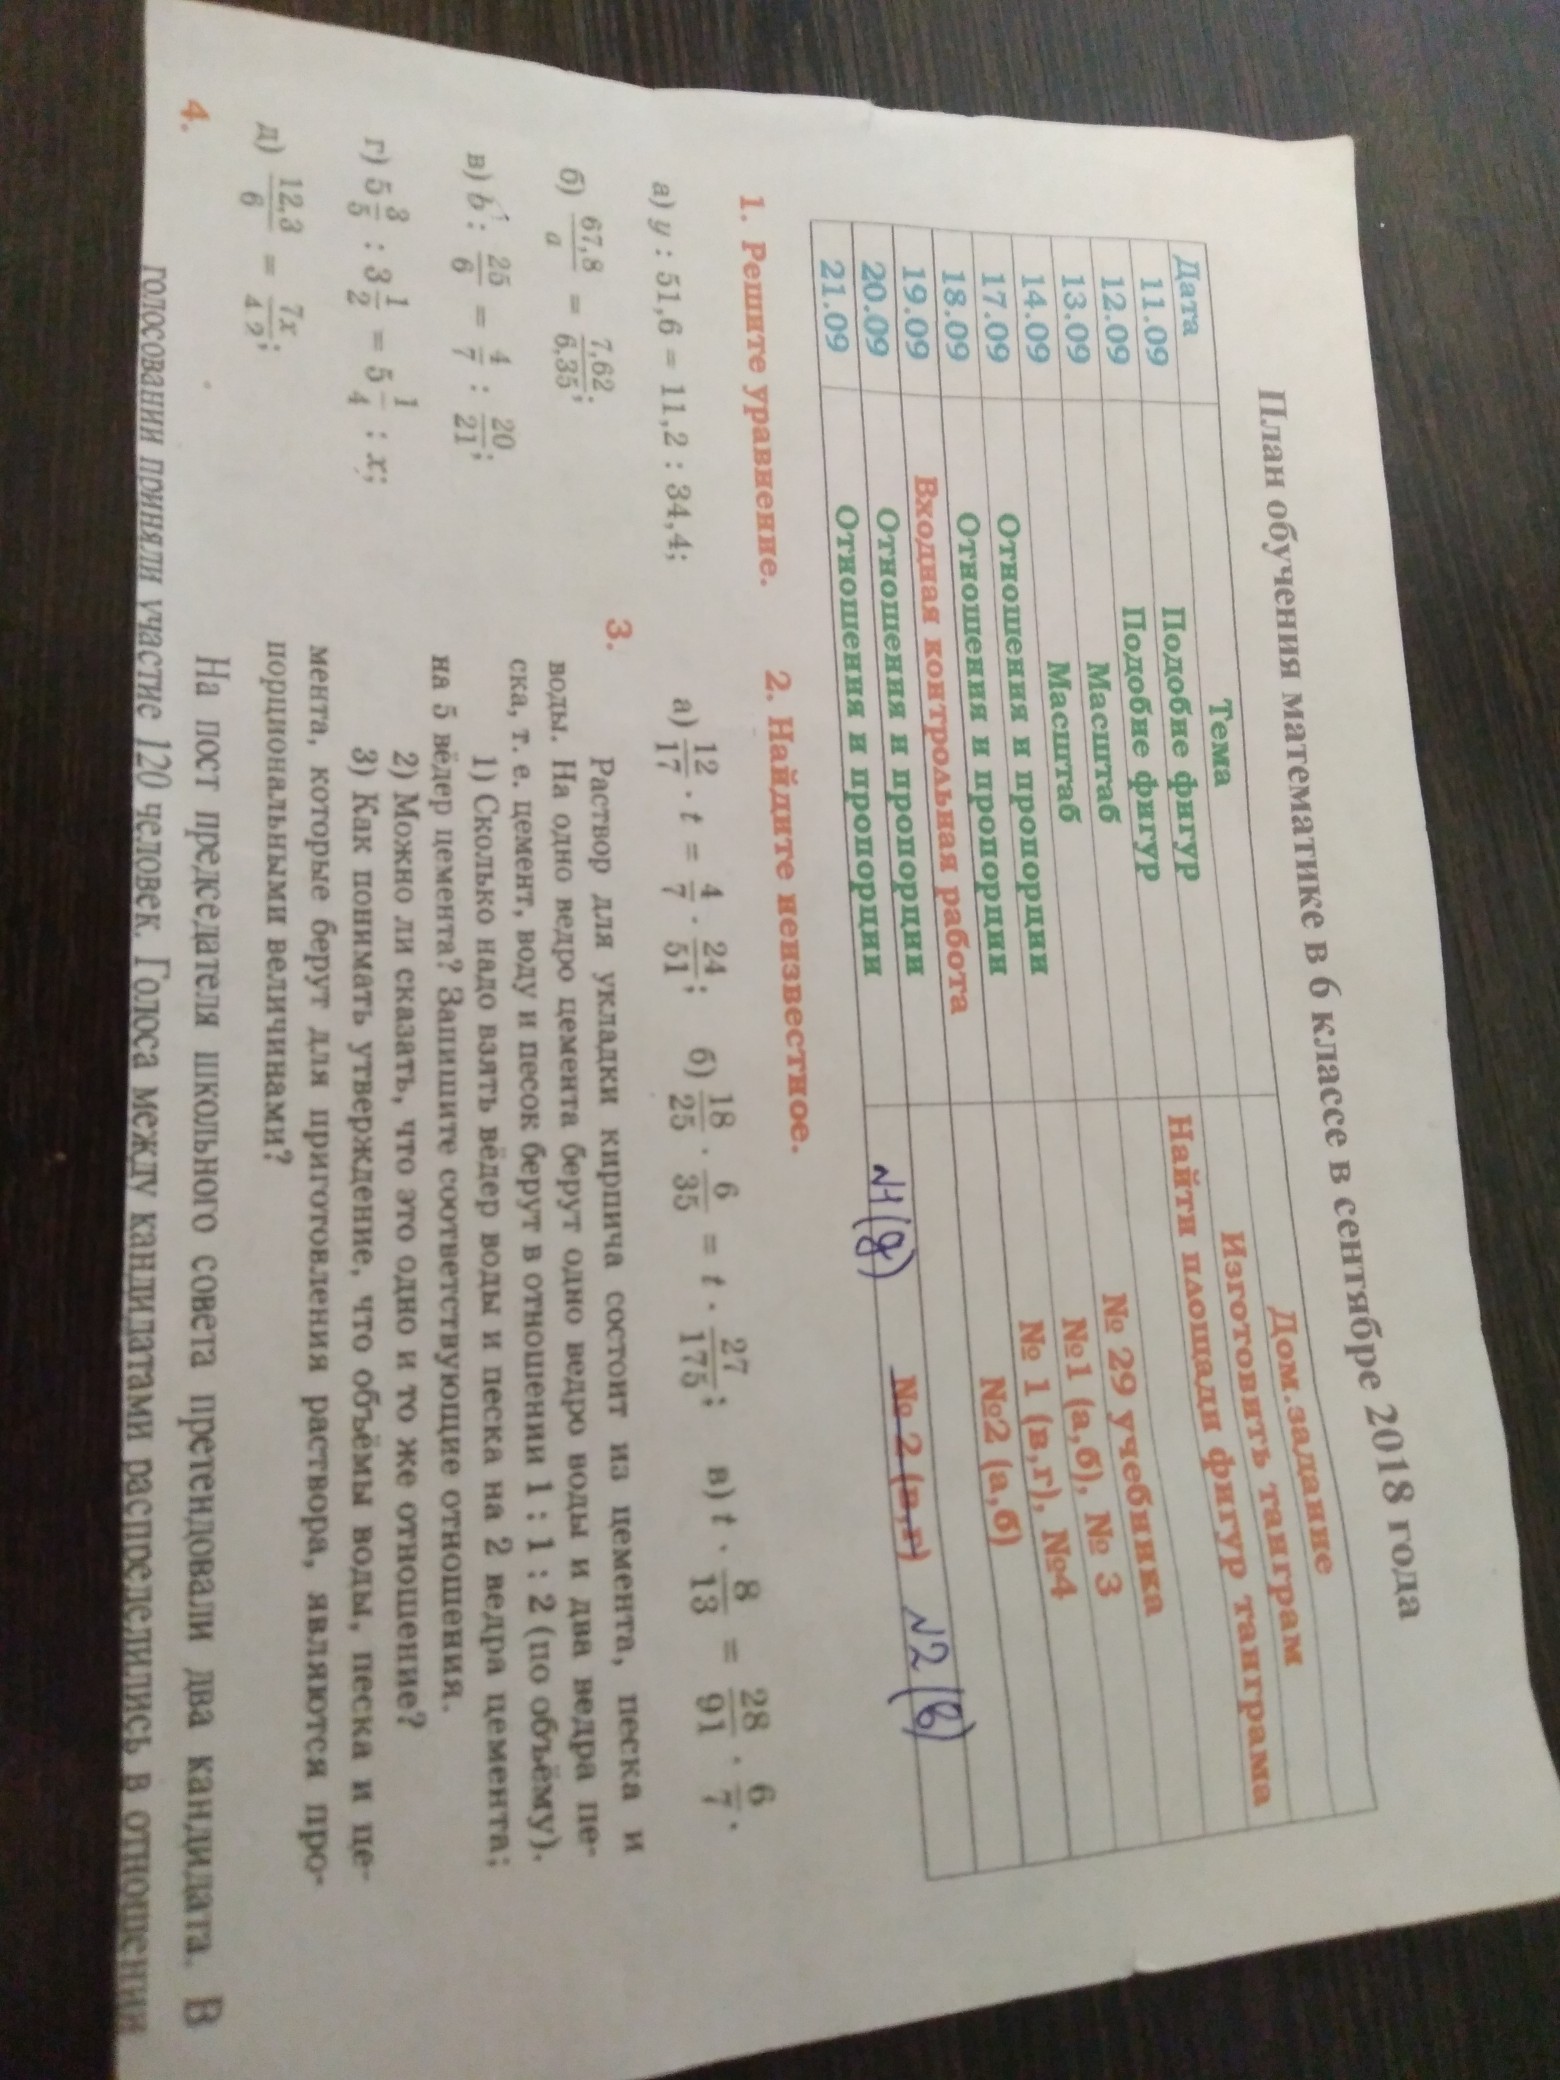 План обучения математике в 6 классе в сентябре 2018 года
Дата Тема Дом.задание
11.09 Подобие фигур Изготовить танграм
12.09 Подобие фигур Найти площади фигур танграма
13.09 Масштаб № 29 учебника
14.09 Масштаб №1 (а,б), № 3
17.09 Отношения и пропорции № 1 (в,г), №4
18.09 Отношения и пропорции №2 (а,б)
19.09 Входная контрольная работа
20.09 Отношения и пропорции № 2 (в,г) №2 (в)
21.09 Отношения и пропорции №1 (д)
1. Решите уравнение.
а) y : 51,6 = 11,2 : 34,4;
б) 67,8/a = 7,62/6,35;
в) b : 25/6 = 4/7 : 20/21;
г) 5 3/5 : 3 1/2 = 5 1/4 : x;
д) 12,3/6 = 7x/4,2;
2. Найдите неизвестное.
а) 12/17 · t = 4/7 · 24/51; б) 18/25 · 6/35 = t · 27/175; в) t · 8/13 = 28/91 · 6/7.
3.
Раствор для укладки кирпича состоит из цемента, песка и
воды. На одно ведро цемента берут одно ведро воды и два ведра пе-
ска, т. е. цемент, воду и песок берут в отношении 1 : 1 : 2 (по объёму).
1) Сколько надо взять вёдер воды и песка на 2 ведра цемента;
на 5 вёдер цемента? Запишите соответствующие отношения.
2) Можно ли сказать, что это одно и то же отношение?
3) Как понимать утверждение, что объёмы воды, песка и це-
мента, которые берут для приготовления раствора, являются про-
порциональными величинами?
4.
На пост председателя школьного совета претендовали два кандидата. В
голосовании приняли участие 120 человек. Голоса между кандидатами распределились в отношении